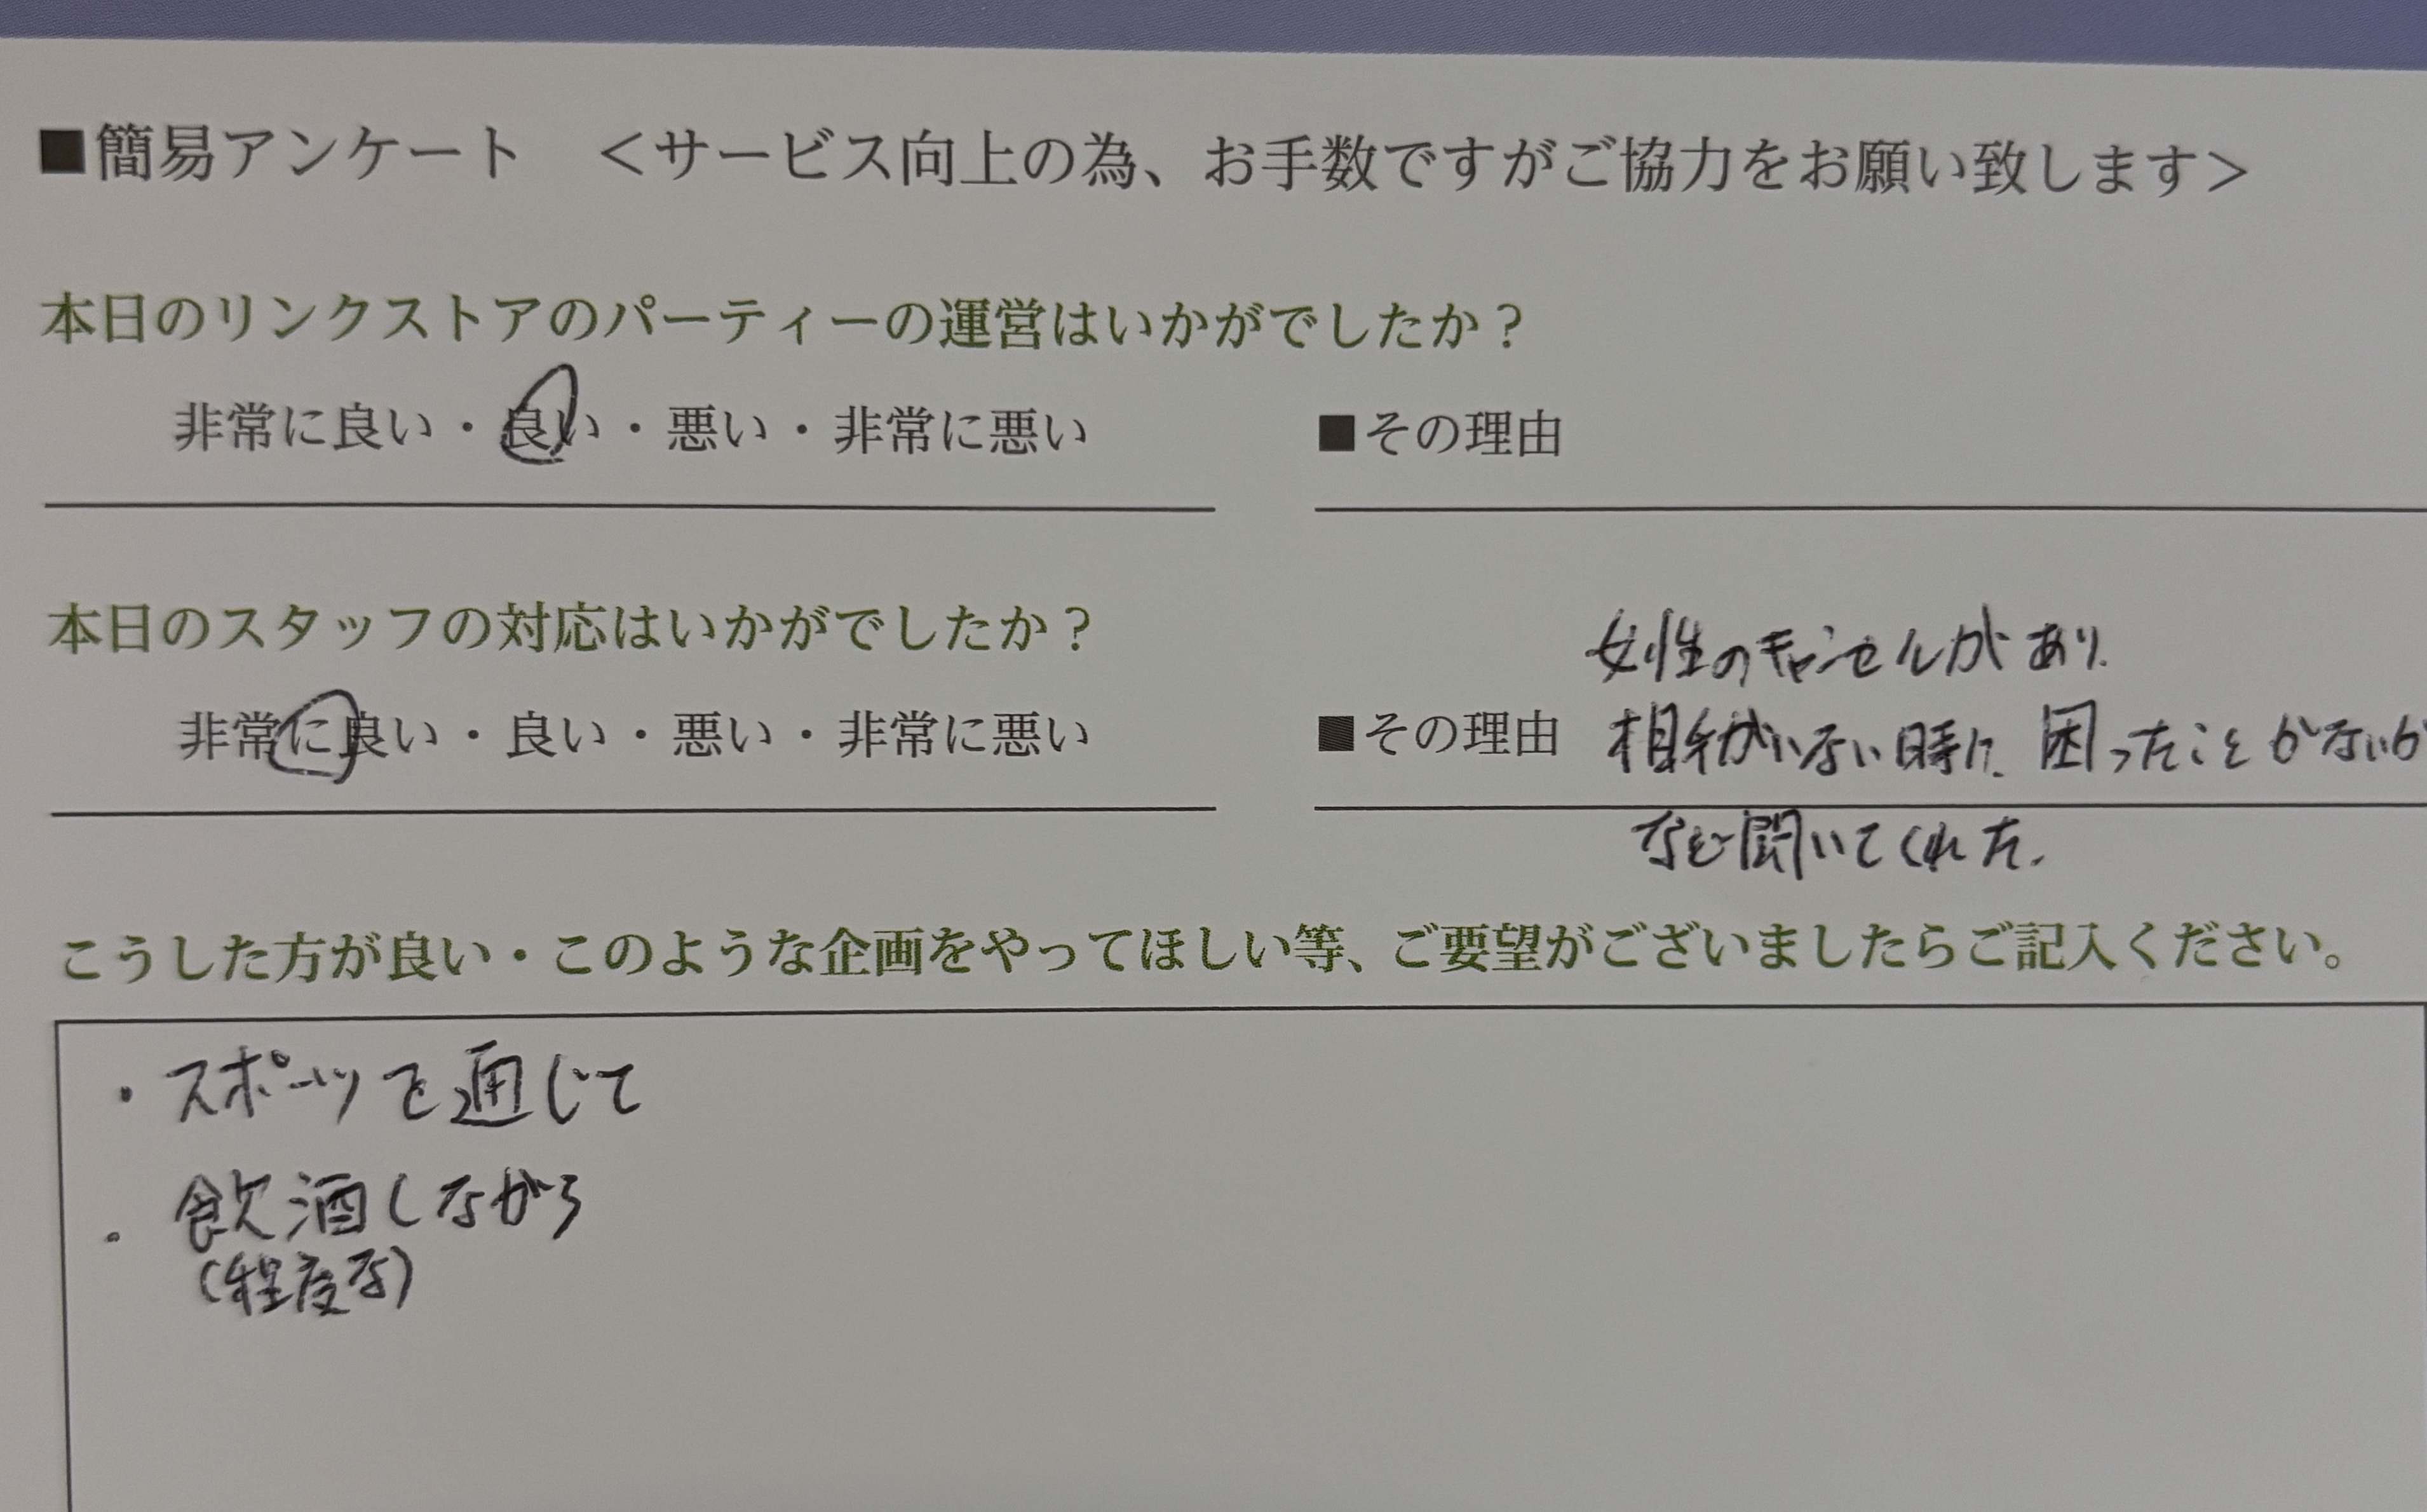 ■簡易アンケート　＜サービス向上の為、お手数ですがご協力をお願い致します＞
本日のリンクストアのパーティーの運営はいかがでしたか？
非常に良い・良い・悪い・非常に悪い　■その理由
本日のスタッフの対応はいかがでしたか？
女性のキャンセルがあり、
非常に良い・良い・悪い・非常に悪い　■その理由　相手がいない時に、困ったことがないか
など聞いてくれた。
こうした方が良い・このような企画をやってほしい等、ご要望がございましたらご記入ください。
・スポーツを通じて
・飲酒しながら
（程度な）